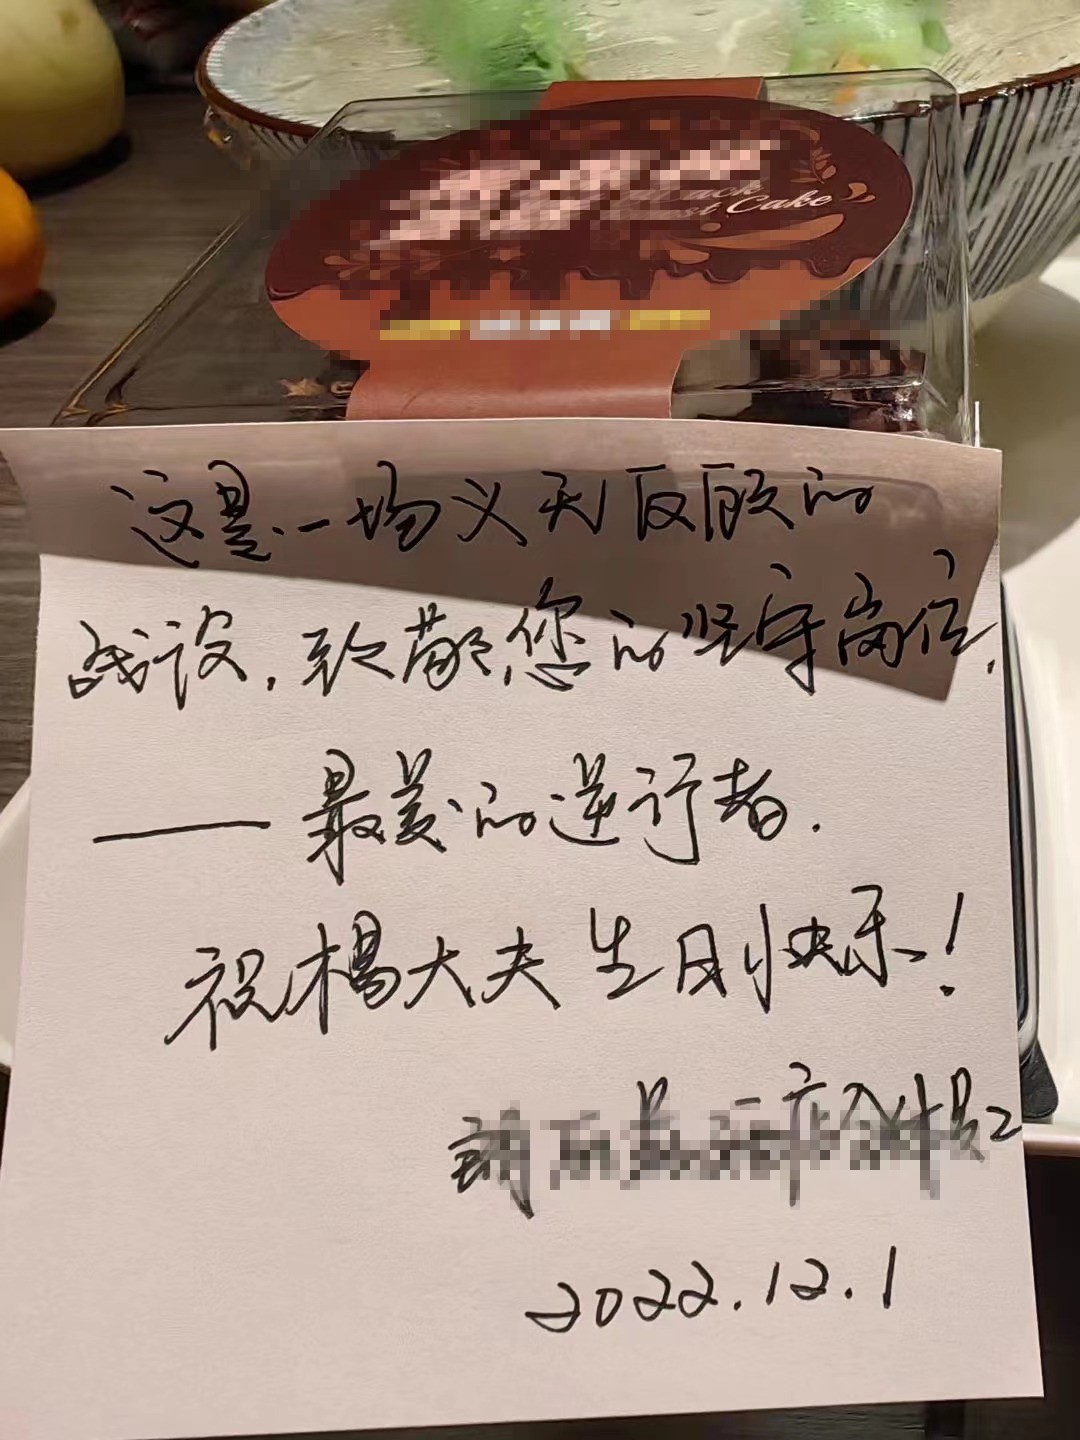 Cake
这是一场义无反顾的
战役，致敬您的坚守岗位，
——最美的逆行者.
祝杨大夫生日快乐！
2022.12.1